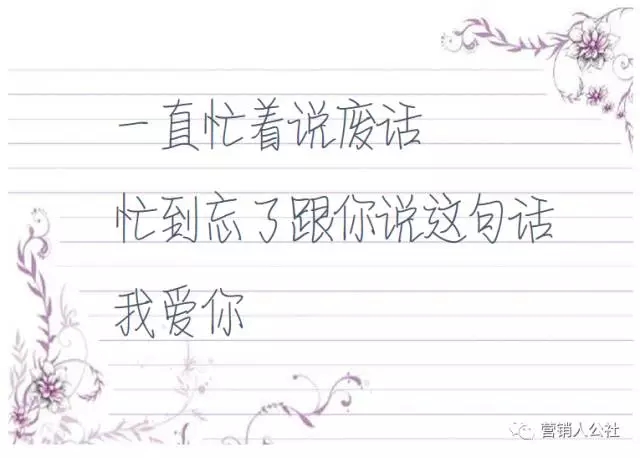 一直忙着说废话
忙到忘了跟你说这句话
我爱你
营销人公社